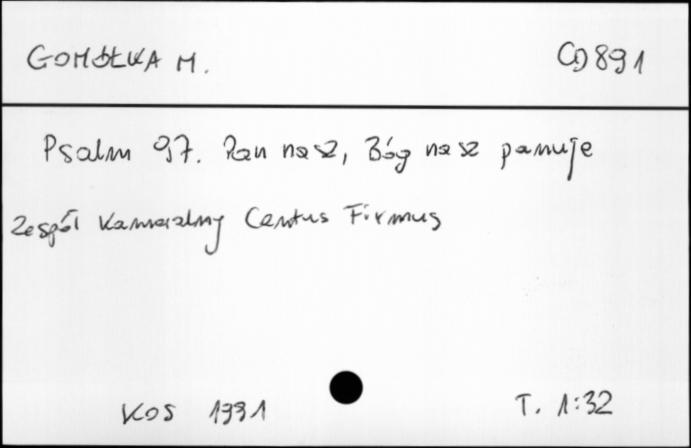 GOMÓŁKA M.
CD891
Psalm 97. Pan nasz, Bóg nasz panuje
Zespół Kameralny Cantus Firmus
KOS 1991
T. 1:32